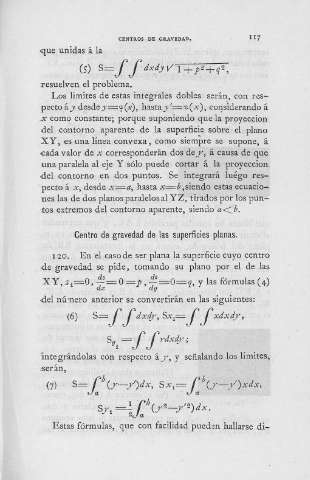 CENTROS DE GRAVEDAD. 117
que unidas á la
(5) S=∫∫dxdy√1+p²+q²,
resuelven el problema.
Los límites de estas integrales dobles serán, con res-
pecto á y desde y=φ(x), hasta y'=π(x), considerando á
x como constante; porque suponiendo que la proyeccion
del contorno aparente de la superficie sobre el plano
XY, es una línea convexa, como siempre se supone, á
cada valor de x corresponderán dos de y, á causa de que
una paralela al eje Y sólo puede cortar á la proyeccion
del contorno en dos puntos. Se integrará luégo res-
pecto á x, desde x=a, hasta x=b, siendo estas ecuacio-
nes las de dos planos paralelos al YZ, tirados por los pun-
tos extremos del contorno aparente, siendo a<b.
Centro de gravedad de las superficies planas.
120. En el caso de ser plana la superficie cuyo centro
de gravedad se pide, tomando su plano por el de las
XY, z₁=0, dz/dx=0=p, dz/dy=0=q, y las fórmulas (4)
del número anterior se convertirán en las siguientes:
(6) S=∫∫dxdy, Sx₁=∫∫xdxdy,
Sy₁=∫∫ydxdy;
integrándolas con respecto á y, y señalando los límites,
serán,
(7) S=∫ₐᵇ(y—y')dx, Sx₁=∫ₐᵇ(y—y')xdx,
Sy₁=½∫ₐᵇ(y²—y'²)dx.
Estas fórmulas, que con facilidad pueden hallarse di-